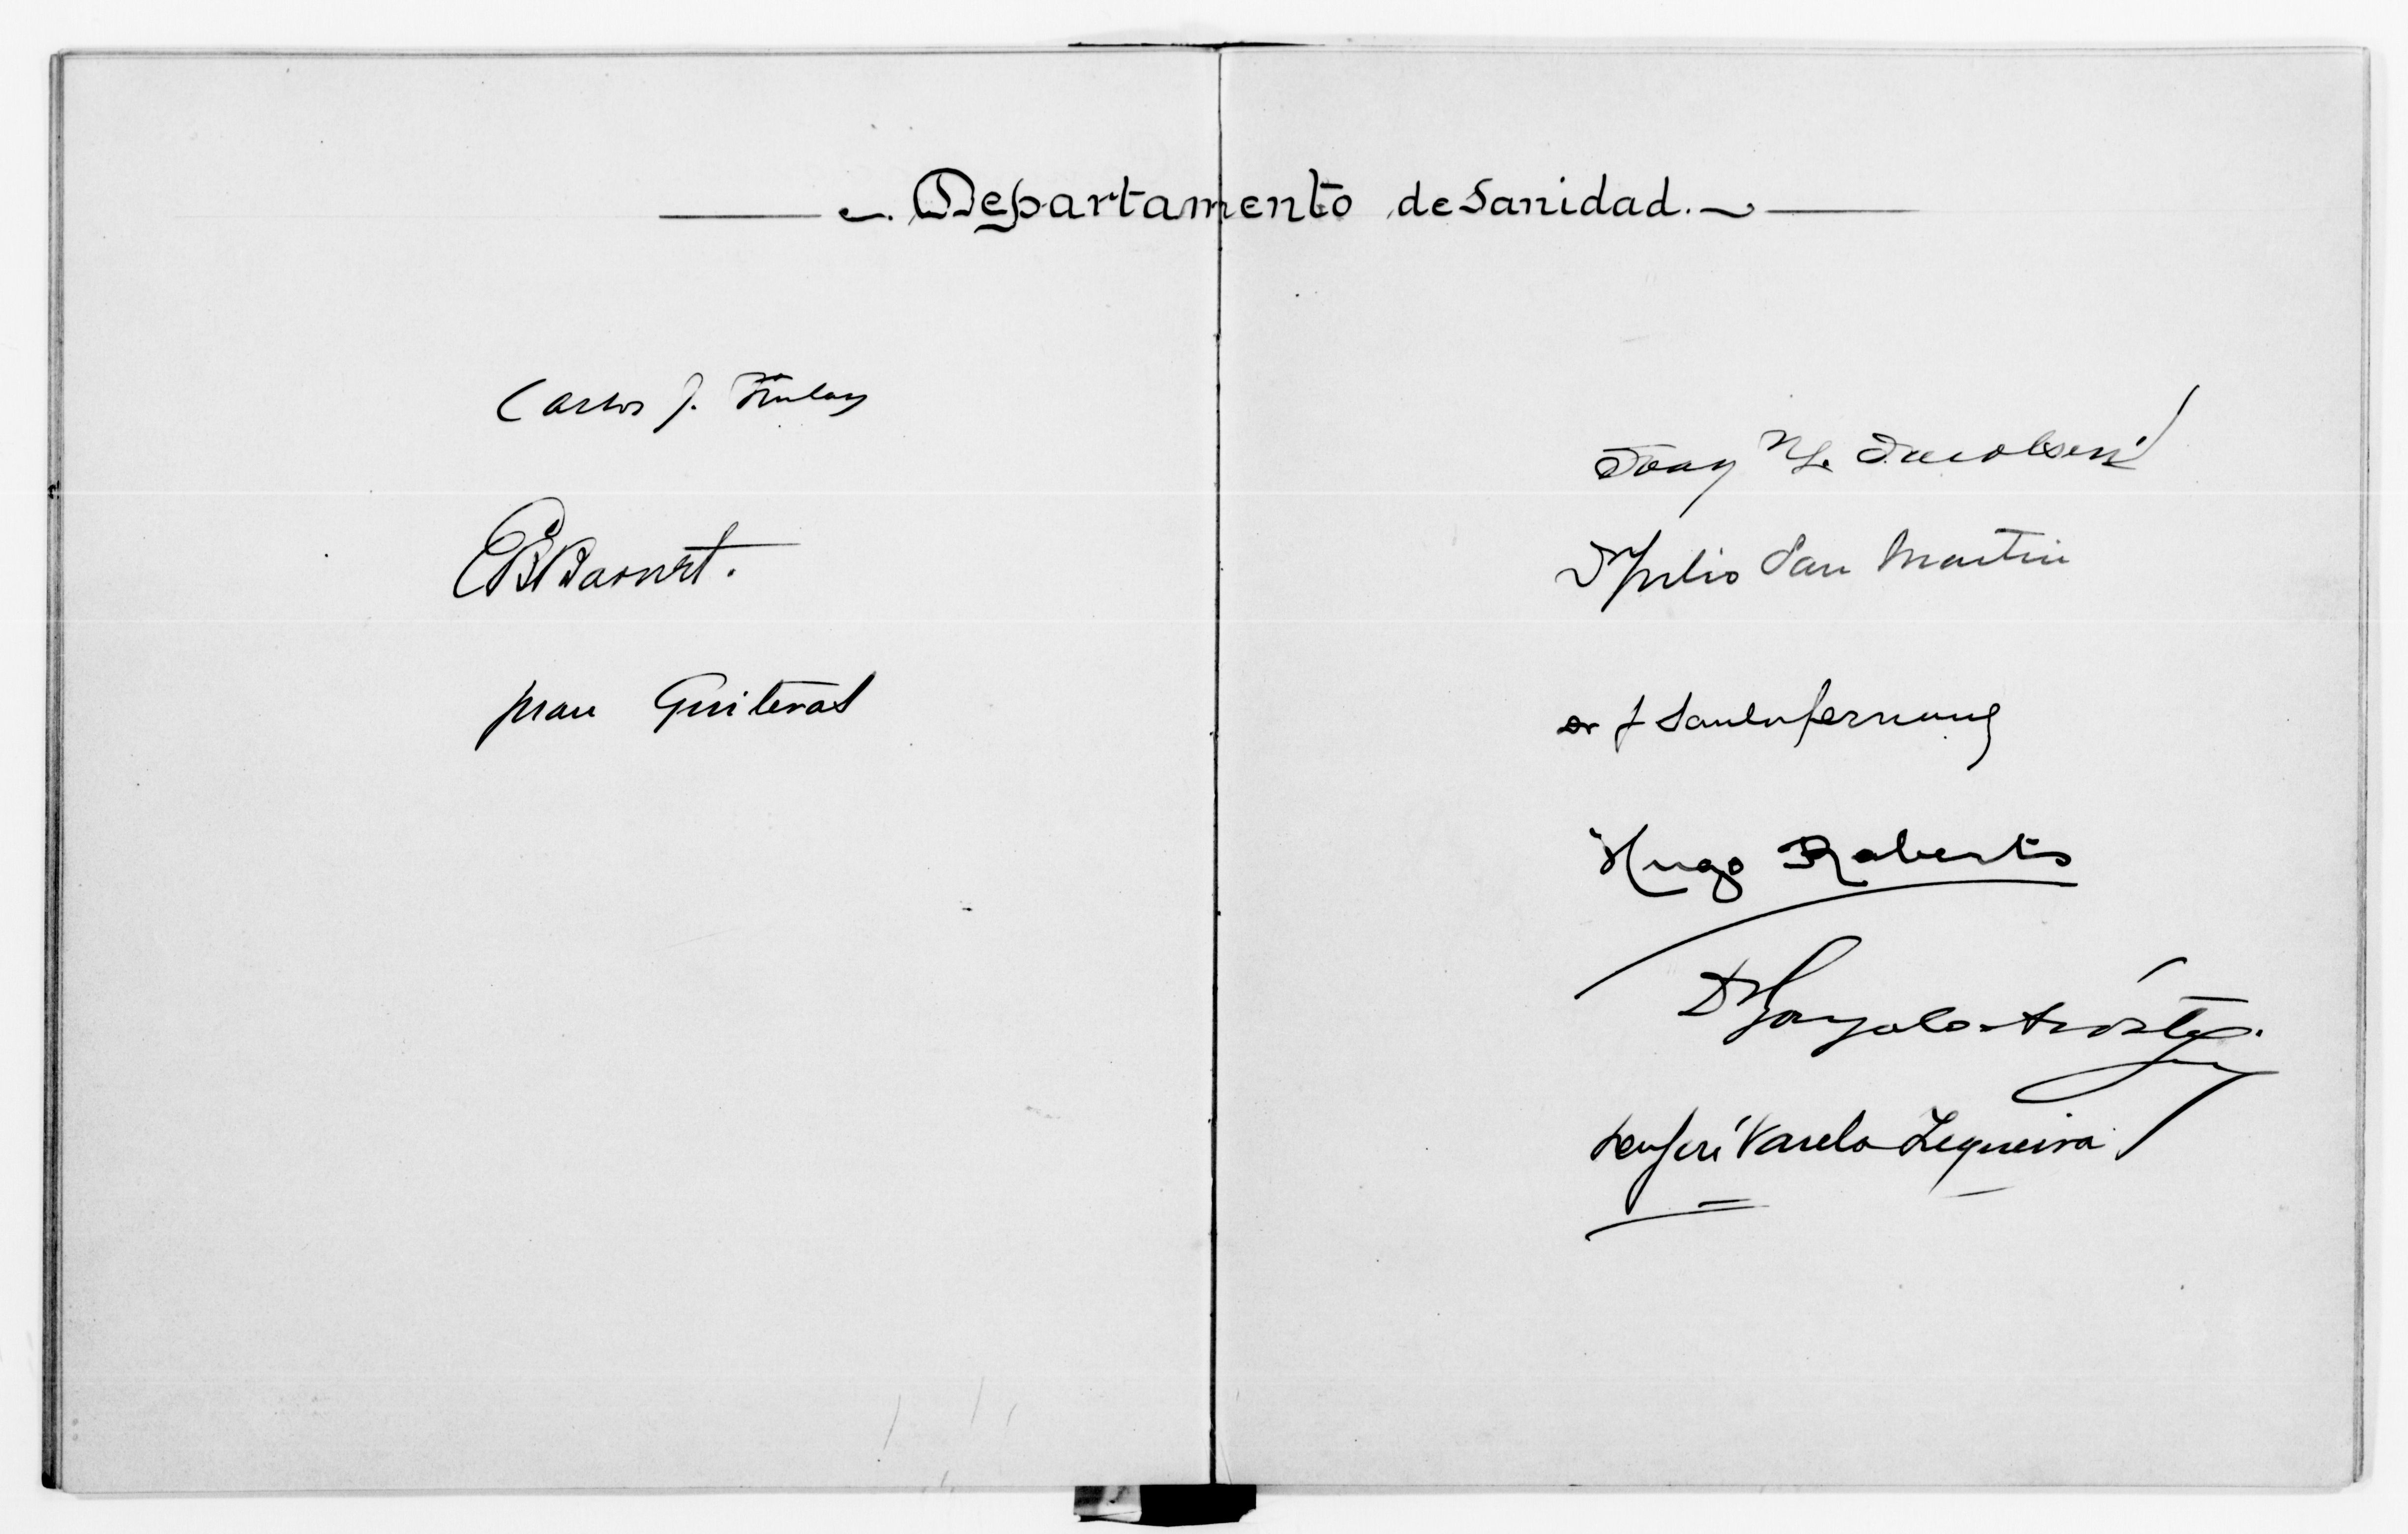 Departamento de Sanidad.
Carlos J. Finlay
E B Barnet.
Juan Guiteras
Joaq L. Jacobsen
Dr Julio San Martin
Dr J Santos Fernandez
Hugo Roberts
Dr Gonzalo Aróstegui
José Varela Zequeira